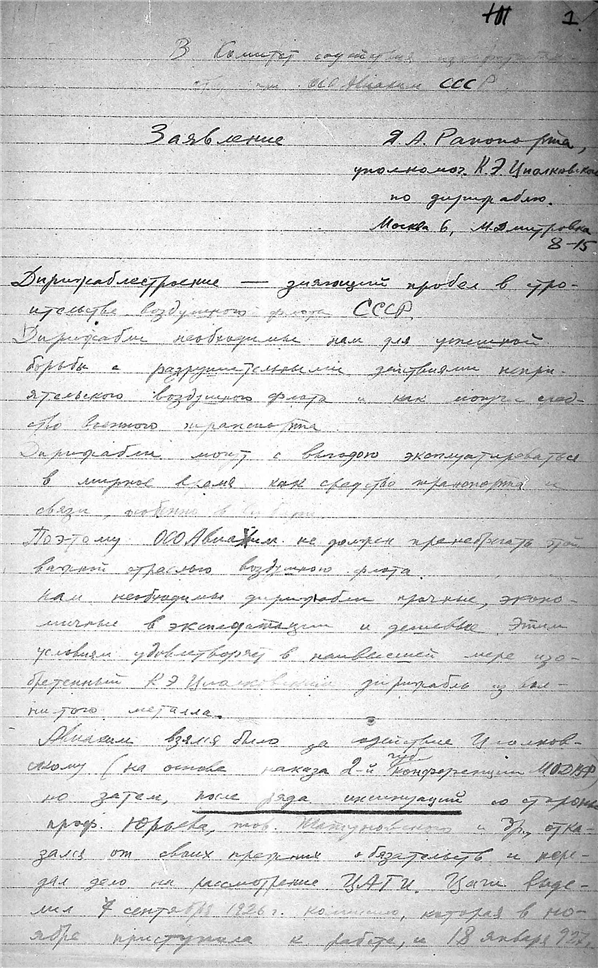 1.
В Комитет содействия
при ОСО Авиахим СССР
Заявление
Я. А. Рапопорта,
уполномоч. К. Э. Циолковского
по дирижаблю.
Москва 6, М. Дмитровка
8-15
Дирижаблестроение — зияющий пробел в стро-
ительстве воздушного флота СССР.
Дирижабли необходимы нам для успешной
борьбы с разрушительными действиями непри-
ятельского воздушного флота и как могучее сред-
ство военного транспорта.
Дирижабли могут с выгодою эксплуатироваться
в мирное время как средство транспорта и
связи, особенно в
Поэтому ОСО Авиахим не должен пренебрегать этой
важной отраслью воздушного флота.
Нам необходимы дирижабли прочные, эконо-
мичные в эксплоатации и дешевые. Этим
условиям удовлетворяет в наивысшей мере изо-
бретенный К Э Циолковским дирижабль из вол-
нистого металла.
Авиахим взялся было за содействие Циолков-
скому (на основе наказа 2-й конференции МОДВФ),
но затем, после ряда инсинуаций со стороны
проф. Юрьева, тов. и др., отка-
зался от своих прежних обязательств и пере-
дал дело на рассмотрение ЦАГИ. Цаги выде-
лил 7 сентября 1926 г. комиссию, которая в но-
ябре приступила к работе, и 18 января 927 г.